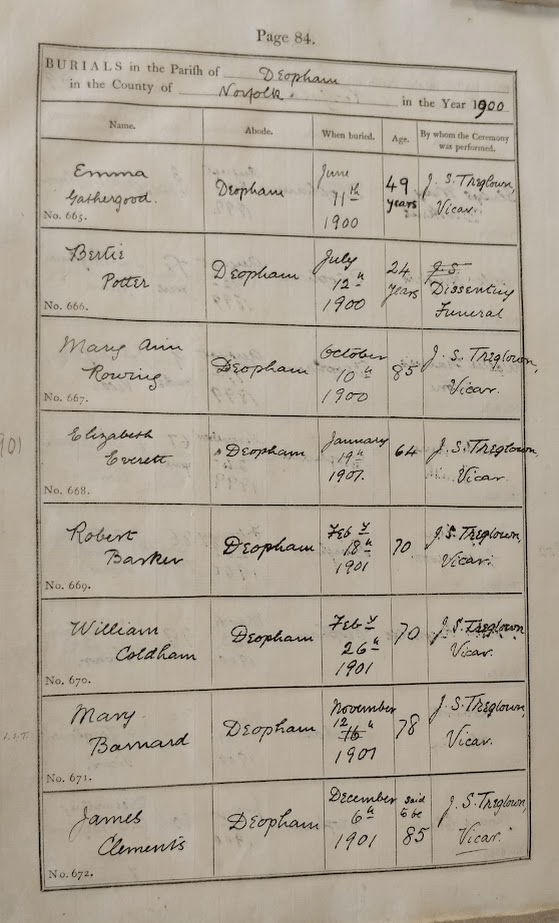 Page 84.
BURIALS in the Parish of Deopham
in the County of Norfolk. in the Year 1900
Name. Abode. When buried. Age. By whom the Ceremony was performed.
Emma Gathergood. Deopham June 11th 1900 49 years J. S. Treglown, Vicar.
No. 665.
Bertie Potter Deopham July 12th 1900 24 years J. S. Dissenting Funeral
No. 666.
Mary Ann Rowing Deopham October 10th 1900 85 J. S. Treglown, Vicar.
No. 667.
901
Elizabeth Everett Deopham January 19th 1901. 64 J. S. Treglown, Vicar
No. 668.
Robert Barker Deopham Feby 18th 1901 70 J. S. Treglown, Vicar.
No. 669.
William Coldham Deopham Feby 26th 1901 70 J. S. Treglown, Vicar.
No. 670.
Mary Barnard Deopham November 12 16th 1901 78 J. S. Treglown, Vicar.
No. 671.
James Clements Deopham December 6th 1901 said to be 85 J. S. Treglown, Vicar.
No. 672.